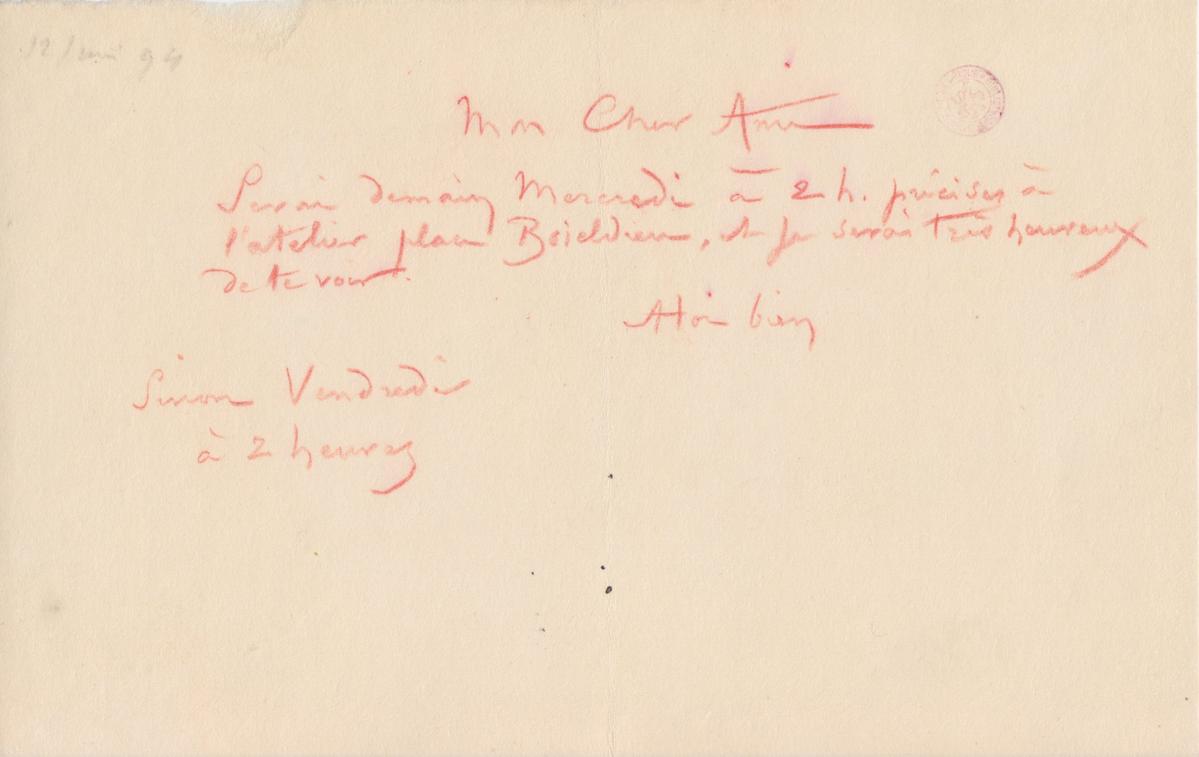 12 juin 94
Mon Cher Ami
Serai demain Mercredi à 2 h. précises à
l'atelier place Boieldieu, et je serai très heureux
de te voir.
A toi bien
Sinon Vendredi
à 2 heures